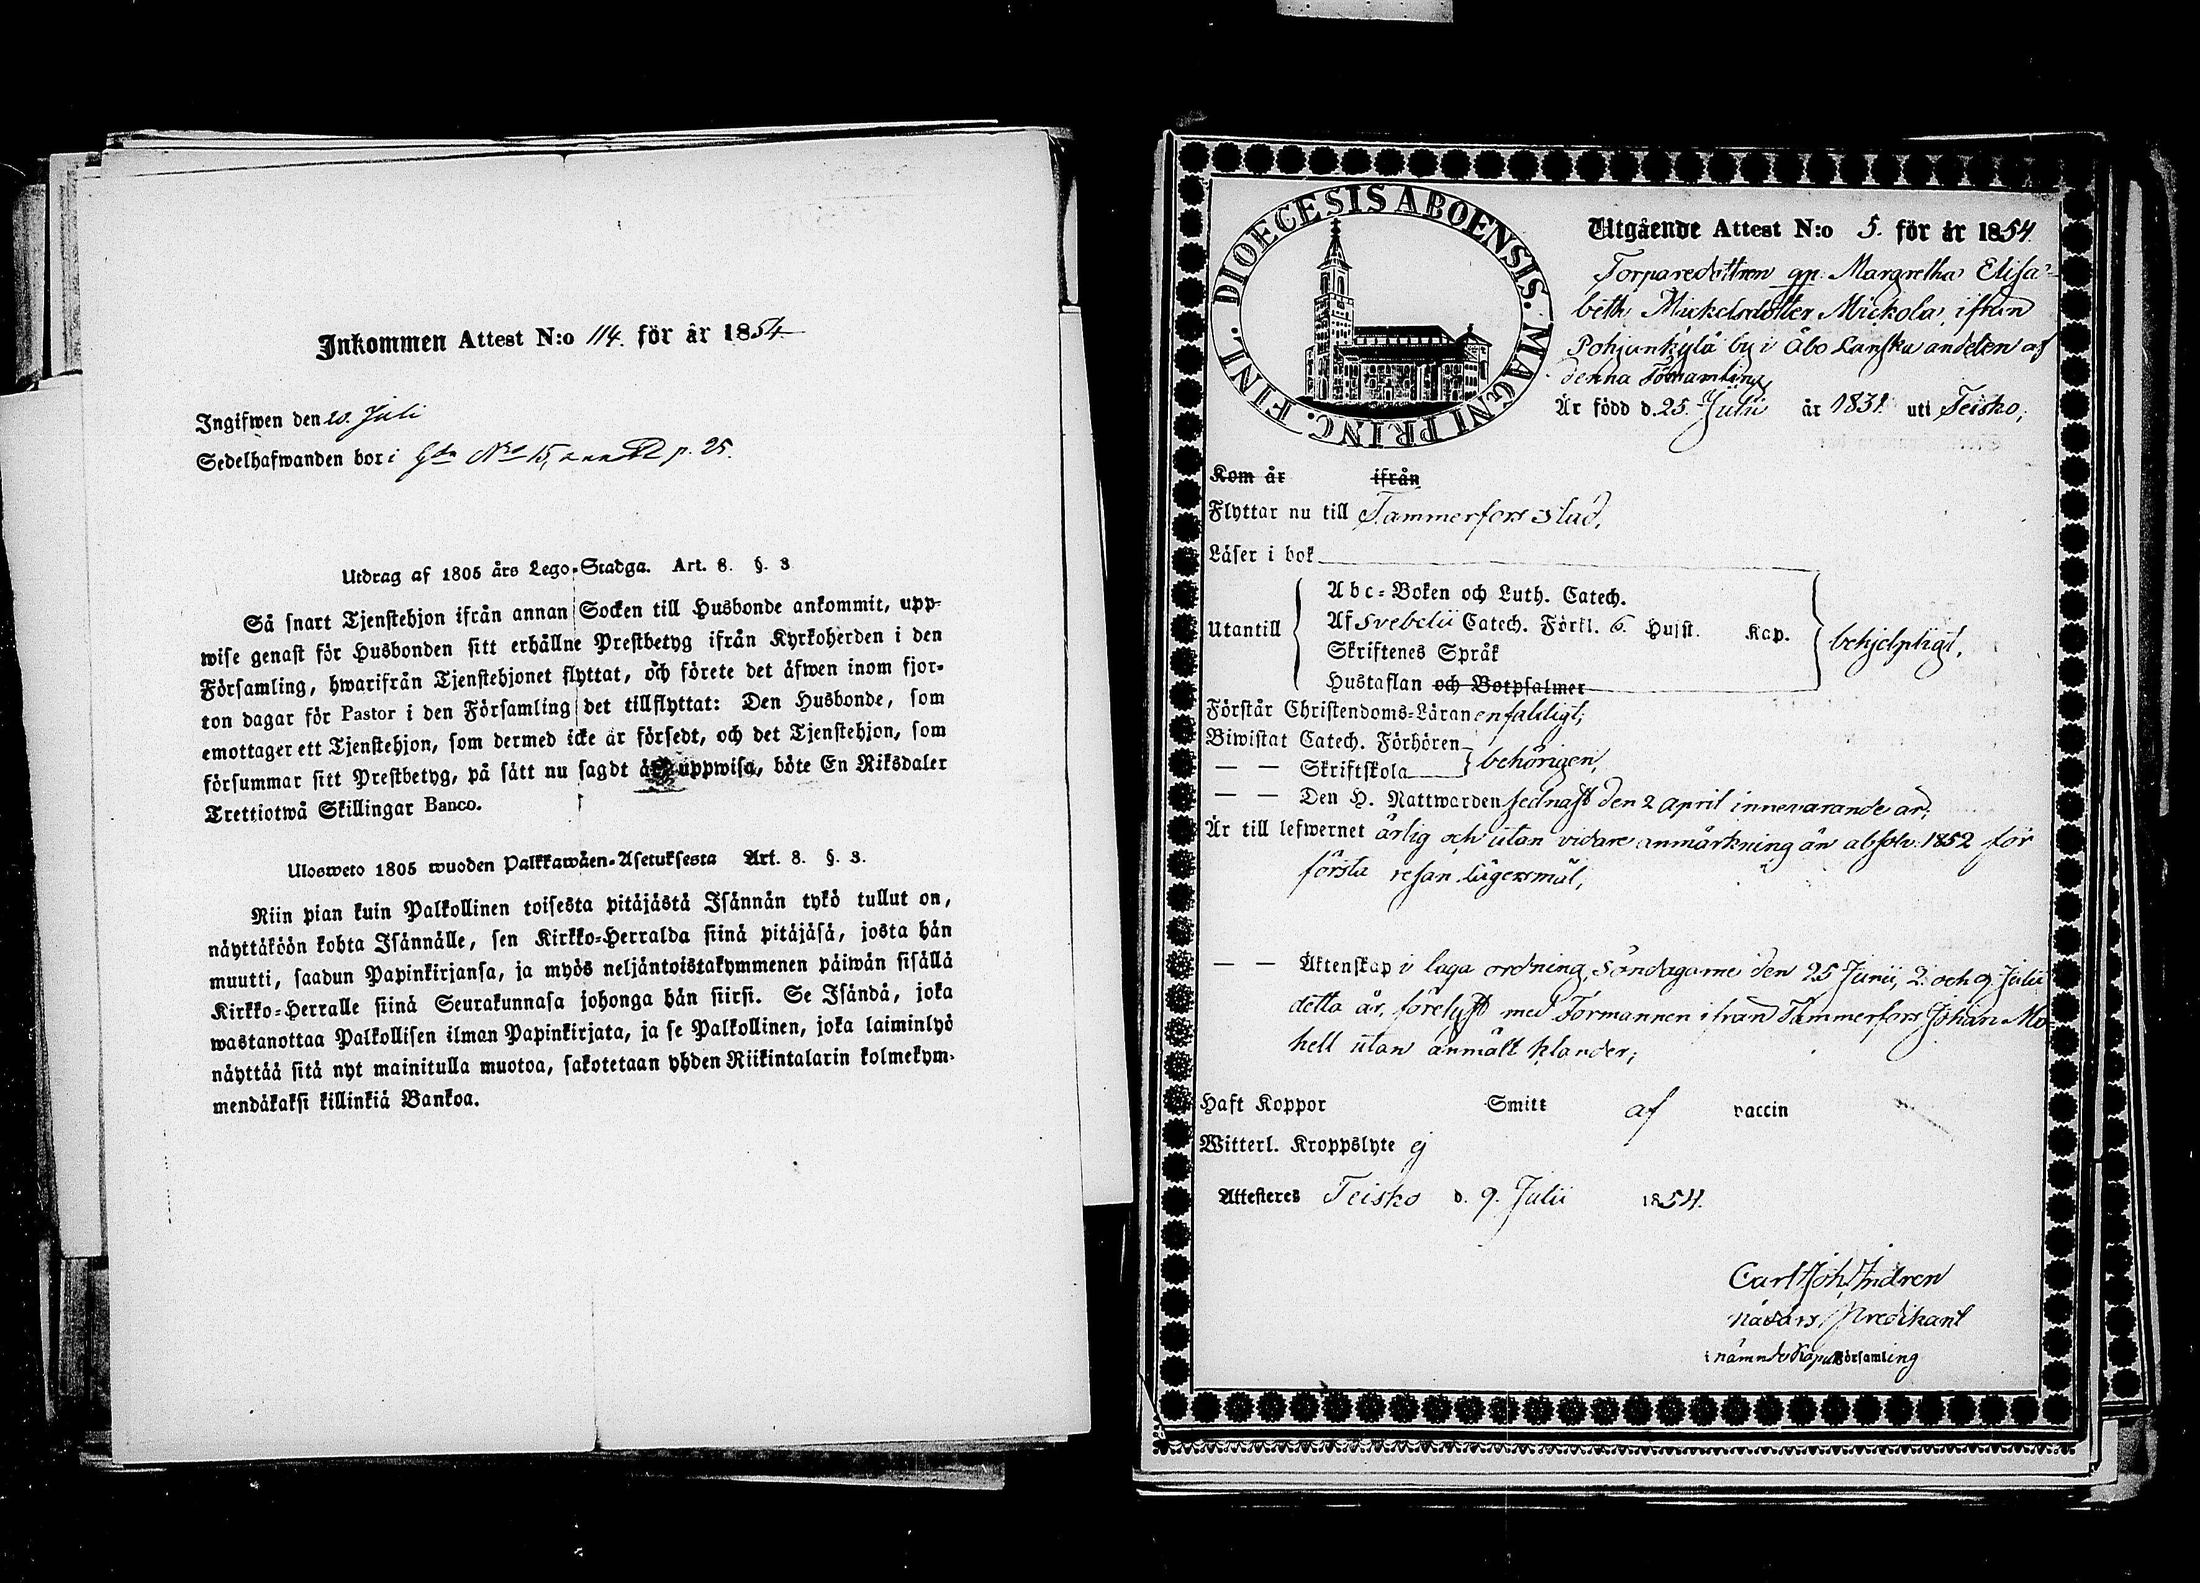 Inkommen Attest N:o 114. för år 1854.
Ingifwen den 20. Juli
Sedelhafwanden bor i Gdn No 15, p. 25.
Utdrag af 1805 års Lego-Stadga. Art. 8. §. 3
Så snart Tjenstehjon ifrån annan Socken till Husbonde ankommit, upp-
wise genast för Husbonden sitt erhållne Prestbetyg ifrån Kyrkoherden i den
Församling, hwarifrån Tjenstehjonet flyttat, och förete det äfwen inom fjor-
ton dagar för Pastor i den Församling det tillflyttat: Den Husbonde, som
emottager ett Tjenstehjon, som dermed icke är försedt, och det Tjenstehjon, som
försummar sitt Prestbetyg, på sätt nu sagdt är uppwisa, böte En Riksdaler
Trettiotwå Skillingar Banco.
Ulosweto 1805 wuoden Palkkawäen-Asetuksesta Art. 8. §. 3.
Niin pian kuin Palkollinen toisesta pitäjästä Isännän tykö tullut on,
näyttäköön kohta Isännälle, sen Kirkko-Herralda siinä pitäjäsä, josta hän
muutti, saadun Papinkirjansa, ja myös neljäntoistakymmenen päiwän sisällä
Kirkko-Herralle siinä Seurakunnasa johonga hän siirsi. Se Isändä, joka
wastanottaa Palkollisen ilman Papinkirjata, ja se Palkollinen, joka laiminlyö
näyttää sitä nyt mainitulla muotoa, sakotetaan yhden Riikintalarin kolmekym-
mendäkaksi killinkiä Bankoa.
DIOECESIS ABOENSIS. MAGNI PRINC. FINL.
Utgående Attest N:o 5. för år 1854.
Torparedottren qp. Margretha Elisa-
beth Mickelsdotter Mickola, ifrån
Pohjankylä by i Åbo Länska andelen af
denna Församling
Är född d. 25. Julii år 1831. uti Teisko;
Kom år ifrån
Flyttar nu till Tammerfors stad.
Läser i bok
Utantill
Abc-Boken och Luth. Catech.
Af Svebelii Catech. Förkl. 6. Hufst. Kap.
Skriftenes Språk
Hustaflan och Botpsalmer
behjelpligt,
Förstår Christendoms-Läran enfaldigt;
Biwistat Catech. Förhören
— — Skriftskola
behörigen,
— — Den H. Nattwarden sednast den 2 april innevarande år;
Är till lefwernet ärlig och utan vidare anmärkning än absolv. 1852 för
första resan lägersmål;
— — Äktenskap i laga ordning, Söndagarne den 25 Junii, 2. och 9. Julii
detta år, förelyst med Formannen ifrån Tammerfors Johan Mo-
hell utan anmält klander;
Haft Koppor Smitt af vaccin
Witterl. Kroppslyte ej
Attesteres Teisko d. 9. Julii 1854.
Carl Joh. Indren
nådårs Predikant
i nämnde Kapell Församling